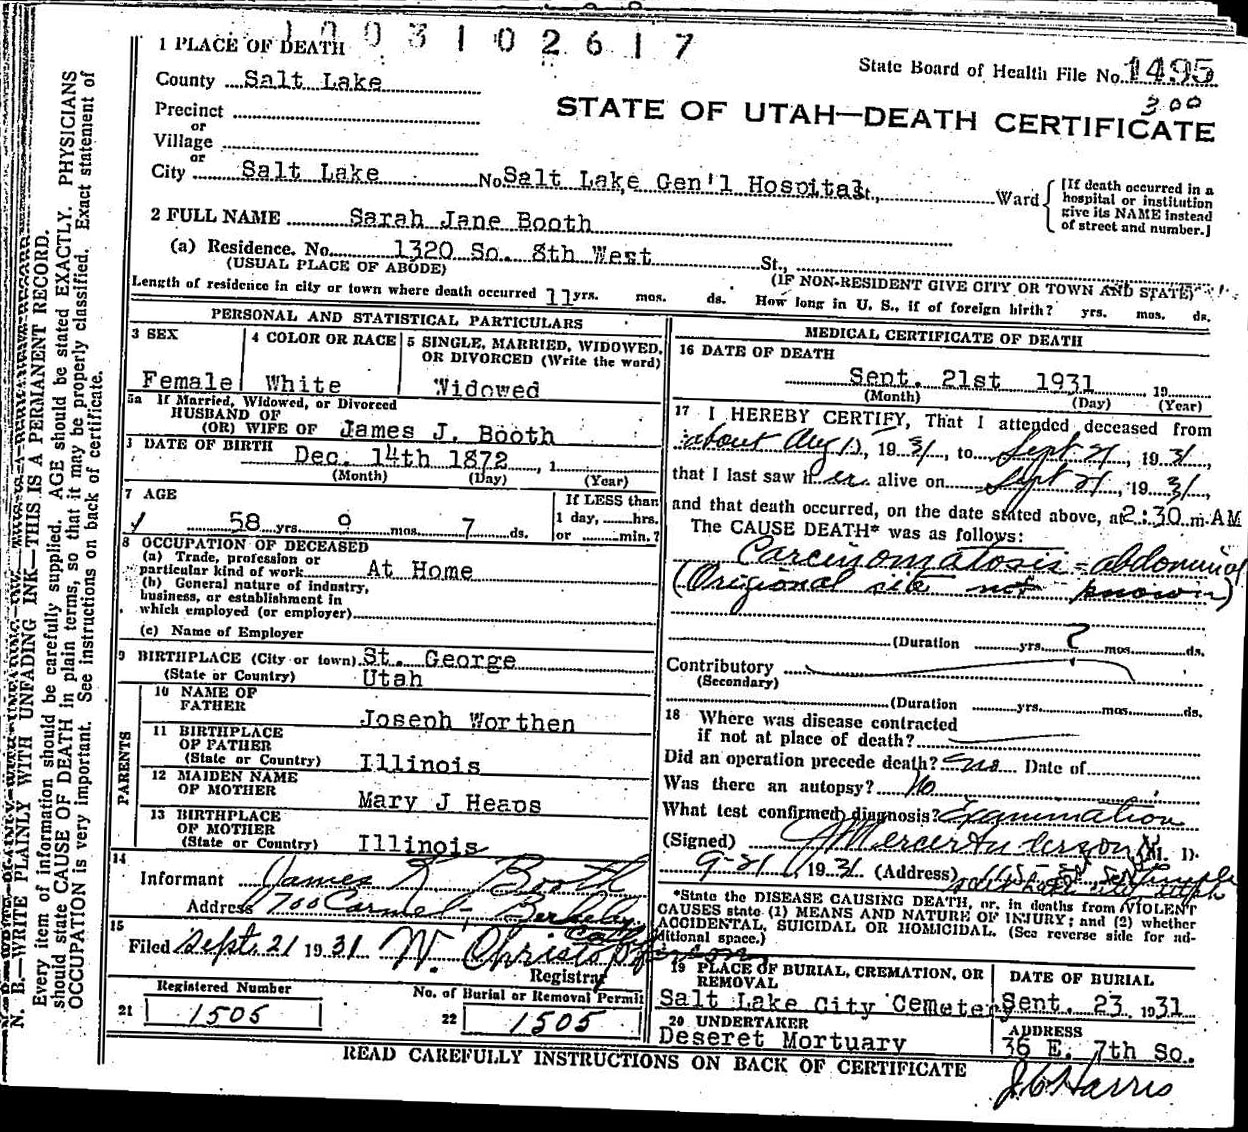 1003102617
1 PLACE OF DEATH
State Board of Health File No. 1495
300
County Salt Lake
STATE OF UTAH—DEATH CERTIFICATE
Precinct
or
Village
or
City Salt Lake No. Salt Lake Gen'l Hospital, Ward
[If death occurred in a
hospital or institution
give its NAME instead
of street and number.]
2 FULL NAME Sarah Jane Booth
(a) Residence. No. 1320 So. 8th West St.,
(USUAL PLACE OF ABODE) (IF NON-RESIDENT GIVE CITY OR TOWN AND STATE)
Length of residence in city or town where death occurred 11 yrs. mos. ds. How long in U. S., if of foreign birth? yrs. mos. ds.
PERSONAL AND STATISTICAL PARTICULARS
3 SEX
Female
4 COLOR OR RACE
White
5 SINGLE, MARRIED, WIDOWED,
OR DIVORCED (Write the word)
Widowed
5a If Married, Widowed, or Divorced
HUSBAND OF
(OR) WIFE OF James J. Booth
DATE OF BIRTH
Dec. 14th 1872, 1
(Month) (Day) (Year)
7 AGE
58 yrs. 9 mos. 7 ds.
If LESS than
1 day, hrs.
or min.?
8 OCCUPATION OF DECEASED
(a) Trade, profession or
particular kind of work At Home
(b) General nature of industry,
business, or establishment in
which employed (or employer)
(c) Name of Employer
9 BIRTHPLACE (City or town) St. George
(State or Country) Utah
PARENTS
10 NAME OF
FATHER Joseph Worthen
11 BIRTHPLACE
OF FATHER
(State or Country) Illinois
12 MAIDEN NAME
OF MOTHER Mary J Heaps
13 BIRTHPLACE
OF MOTHER
(State or Country) Illinois
14
Informant James R Booth
Address 1700 Carmel, Berkeley, Calif
15
Filed Sept. 21 1931 W. Christopherson
Registrar
Registered Number
21 1505
No. of Burial or Removal Permit
22 1505
MEDICAL CERTIFICATE OF DEATH
16 DATE OF DEATH
Sept. 21st 1931 19
(Month) (Day) (Year)
17 I HEREBY CERTIFY, That I attended deceased from
about Aug 13, 1931, to Sept 21, 1931,
that I last saw her alive on Sept 21, 1931,
and that death occurred, on the date stated above, at 2:30 m. AM
The CAUSE DEATH* was as follows:
Carcinomatosis - abdominal
(Origional site not known)
(Duration yrs. ? mos. ds.
Contributory
(Secondary)
(Duration yrs. mos. ds.
18 Where was disease contracted
if not at place of death?
Did an operation precede death? no Date of
Was there an autopsy? No
What test confirmed diagnosis? Examination
(Signed) J Mercer Anderson M. D.
9-21, 1931 (Address) Temple
*State the DISEASE CAUSING DEATH, or, in deaths from VIOLENT
CAUSES state (1) MEANS AND NATURE OF INJURY; and (2) whether
ACCIDENTAL, SUICIDAL OR HOMICIDAL. (See reverse side for ad-
ditional space.)
19 PLACE OF BURIAL, CREMATION, OR
REMOVAL
Salt Lake City Cemetery
DATE OF BURIAL
Sept. 23 1931
20 UNDERTAKER
Deseret Mortuary
ADDRESS
36 E. 7th So.
READ CAREFULLY INSTRUCTIONS ON BACK OF CERTIFICATE
J C Harris
N. B.—WRITE PLAINLY WITH UNFADING INK—THIS IS A PERMANENT RECORD.
Every item of information should be carefully supplied. AGE should be stated EXACTLY. PHYSICIANS
should state CAUSE OF DEATH in plain terms, so that it may be properly classified. Exact statement of
OCCUPATION is very important. See instructions on back of certificate.